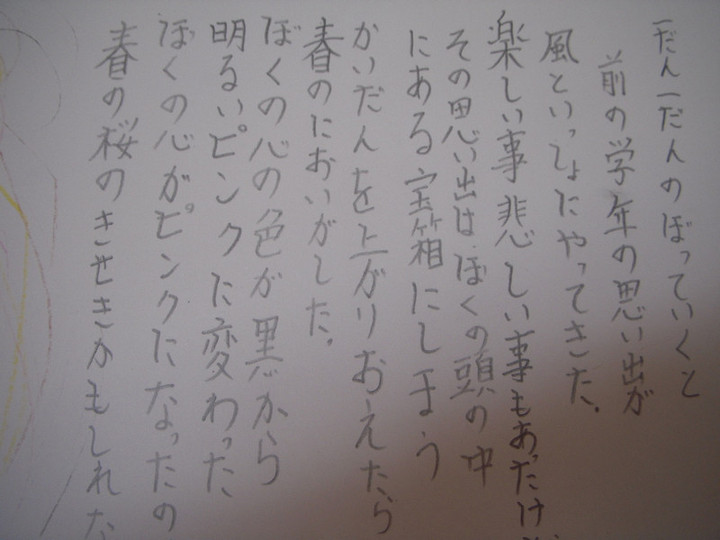 一だん一だんのぼっていくと
前の学年の思い出が
風といっしょにやってきた。
楽しい事悲しい事もあったけ
その思い出はぼくの頭の中
にある宝箱にしまう
かいだんを上がりおえたら
春のにおいがした。
ぼくの心の色が黒から
明るいピンクに変わった
ぼくの心がピンクになったの
春の桜のきせきかもしれた